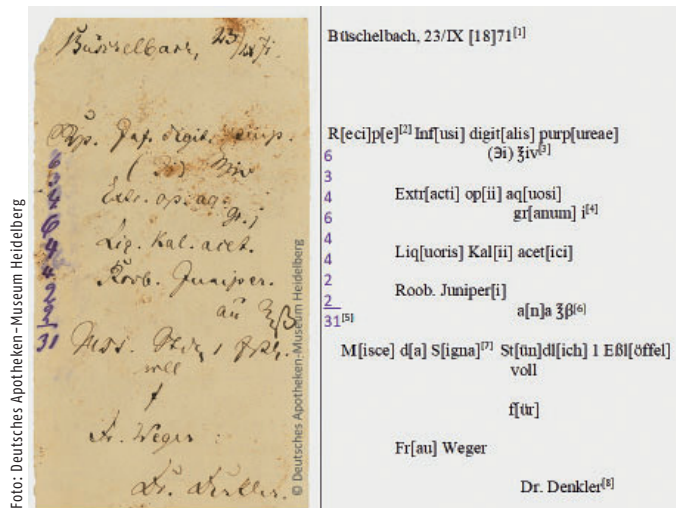 Foto: Deutsches Apotheken-Museum Heidelberg
Büschelbach, 23/IX 71.
Rp. Inf. digit. purp.
(℈i) ℥iv
Extr. op. aq.
gr. i
Liq. Kal. acet.
Roob. Juniper.
aa ℥β
MdS. Stdl. 1 Eßl.
voll
f
Fr. Weger
Dr. Denkler.
6
3
4
6
4
4
2
2
31
© Deutsches Apotheken-Museum Heidelberg
Büschelbach, 23/IX [18]71[1]
R[eci]p[e][2] Inf[usi] digit[alis] purp[ureae]
(℈i) ℥iv[3]
Extr[acti] op[ii] aq[uosi]
gr[anum] i[4]
Liq[uoris] Kal[ii] acet[ici]
Roob. Juniper[i]
a[n]a ℥β[6]
6
3
4
6
4
4
2
2
31[5]
M[isce] d[a] S[igna][7] St[ün]dl[ich] 1 Eßl[öffel]
voll
f[ür]
Fr[au] Weger
Dr. Denkler[8]